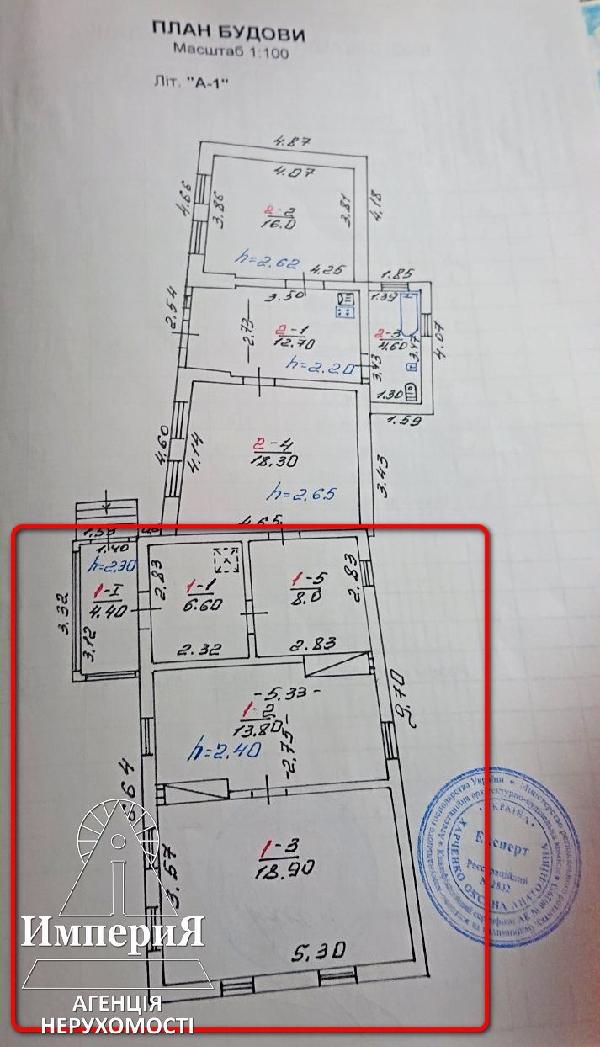 ПЛАН БУДОВИ
Масштаб 1:100
Літ. "А-1"
4.87
4.07
4.66
3.86
2-2
16.0
3.81
4.18
h=2.62
4.25
1.85
3.50
1.39
2.54
2.73
2-1
12.70
2-3
4.60
3.47
4.07
h=2.20
3.43
1.30
1.59
4.60
4.14
2-4
18.30
3.43
h=2.65
4.65
1.40
h=2.30
2.83
1-1
6.60
1-5
8.0
2.83
1-I
4.40
3.32
3.12
2.32
2.83
5.33
1-2
13.80
2.75
h=2.40
9.70
1-3
18.90
5.30
Експерт
ХАРЧЕНКО ОКСАНА
ИмпериЯ
АГЕНЦІЯ
НЕРУХОМОСТІ